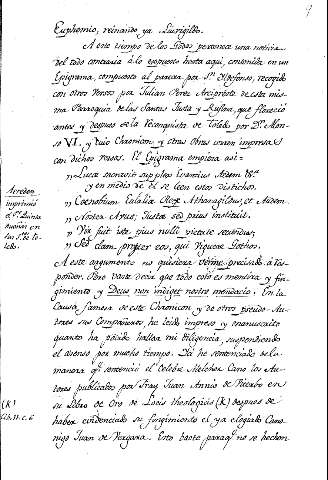 9
Euphemio, reinando ya Liuvigildo.
A este tiempo de los Godos pertenece una noticia
del todo contraria à lo expuesto hasta aqui, contenida en un
Epigrama, compuesto al parecer por Sn. Ildefonso, recogido
con otros versos por Julian Perez Arcipreste de esta mis-
ma Parroquia de las Santas Justa y Rufina, que floreció
antes y despues de la reconquista de Toledo por Dn. Alon-
so VI. y cuio Chronicon y otras obras andan impresas
con dichos versos. El Epigrama empieza asi=
y en medio de él se leen estos disticos.
„ Coenobium Eulaliæ Rex Athanagildus, et
„ Noster Avus; Justæ sed prius instituit.
„ Vix fuit iste, pius nulli pietate secundus,
„ Sed clam, propter eos, qui viguere Gothos.
A este argumento no quisiera verme precisado à res-
ponder. Pero baste decir que todo esto es mentira y fin-
gimiento y Deus non indiget nostro mendacio. En la
Causa famosa de este Chronicon y de otros pseudo-Au-
tores sus Compañeros he leido impreso y manuscrito
quanto ha podido hallar mi diligencia, suspendiendo
el asenso por mucho tiempo. Y he sentenciado de la
manera qe. sentenció el Celebre Melchor Cano los Au-
tores publicados por Fray Juan Annio de Viterbo en
su Libro de Oro de Locis theologicis (K) despues de
haber evidenciado su fingimiento el ya elogiado Cano-
nigo Juan de Vergara. Esto baste paraqe. no se hechen
imprimió
el Pe. Quinta-
nadueñas en
sus Stos. de To-
ledo.
(K)
Lib. 11. c. 6